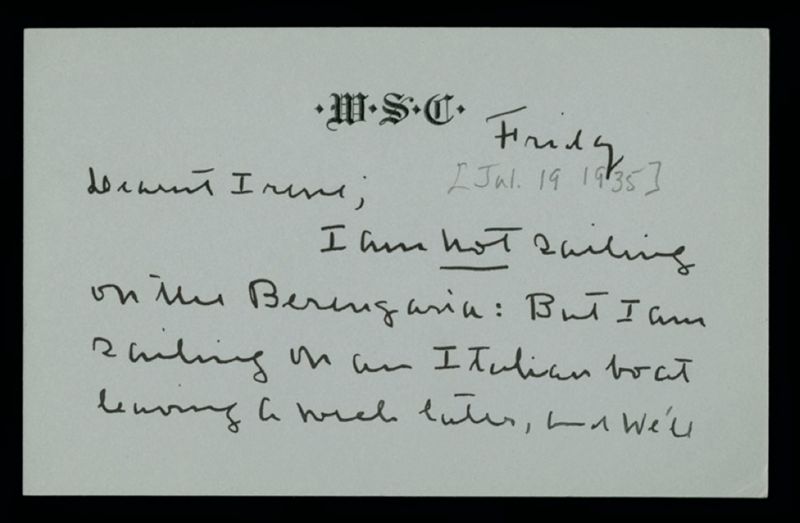 ·W·S·C·
Friday
[Jul. 19 1935]
Dearest Irene;
I am not sailing
on the Berengaria: But I am
sailing on an Italian boat
leaving a week later, and We'll